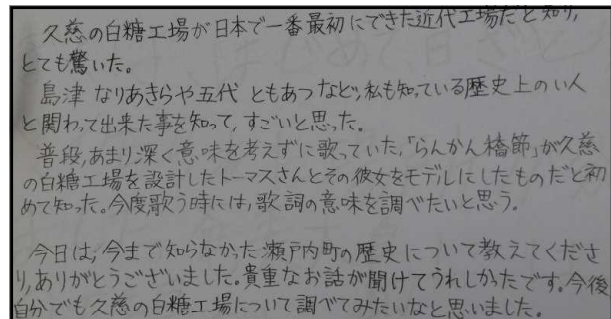 久慈の白糖工場が日本で一番最初にできた近代工場だと知り,
とても驚いた。
島津 なりあきらや五代 ともあつなど,私も知っている歴史上のい人
と関わって出来た事を知って,すごいと思った。
普段,あまり深く意味を考えずに歌っていた,「らんかん橋節」が久慈
の白糖工場を設計したトーマスさんとその彼女をモデルにしたものだと初
めて知った。今度歌う時には,歌詞の意味を調べたいと思う。
今日は,今まで知らなかった瀬戸内町の歴史について教えてくださ
り,ありがとうございました。貴重なお話が聞けてうれしかったです。今後
自分でも久慈の白糖工場について調べてみたいなと思いました。